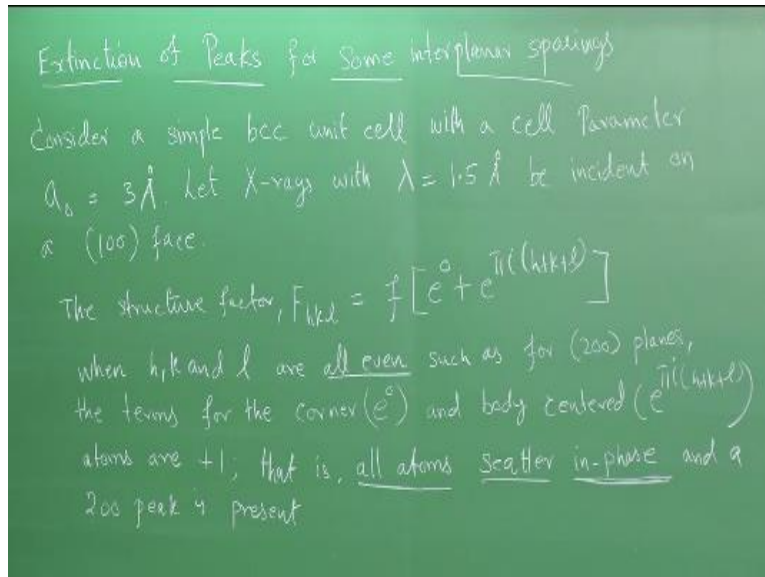 Extinction of Peaks for Some interplanar spacings
Consider a simple bcc unit cell with a cell Parameter
a₀ = 3 Å. Let X-rays with λ = 1.5 Å be incident on
a (100) face.
The structure factor, F_hkl = f [e⁰ + e^{πi(h+k+l)}]
when h, k and l are all even such as for (200) planes,
the terms for the corner (e⁰) and body centered (e^{πi(h+k+l)})
atoms are +1; that is, all atoms scatter in-phase and a
200 peak is present